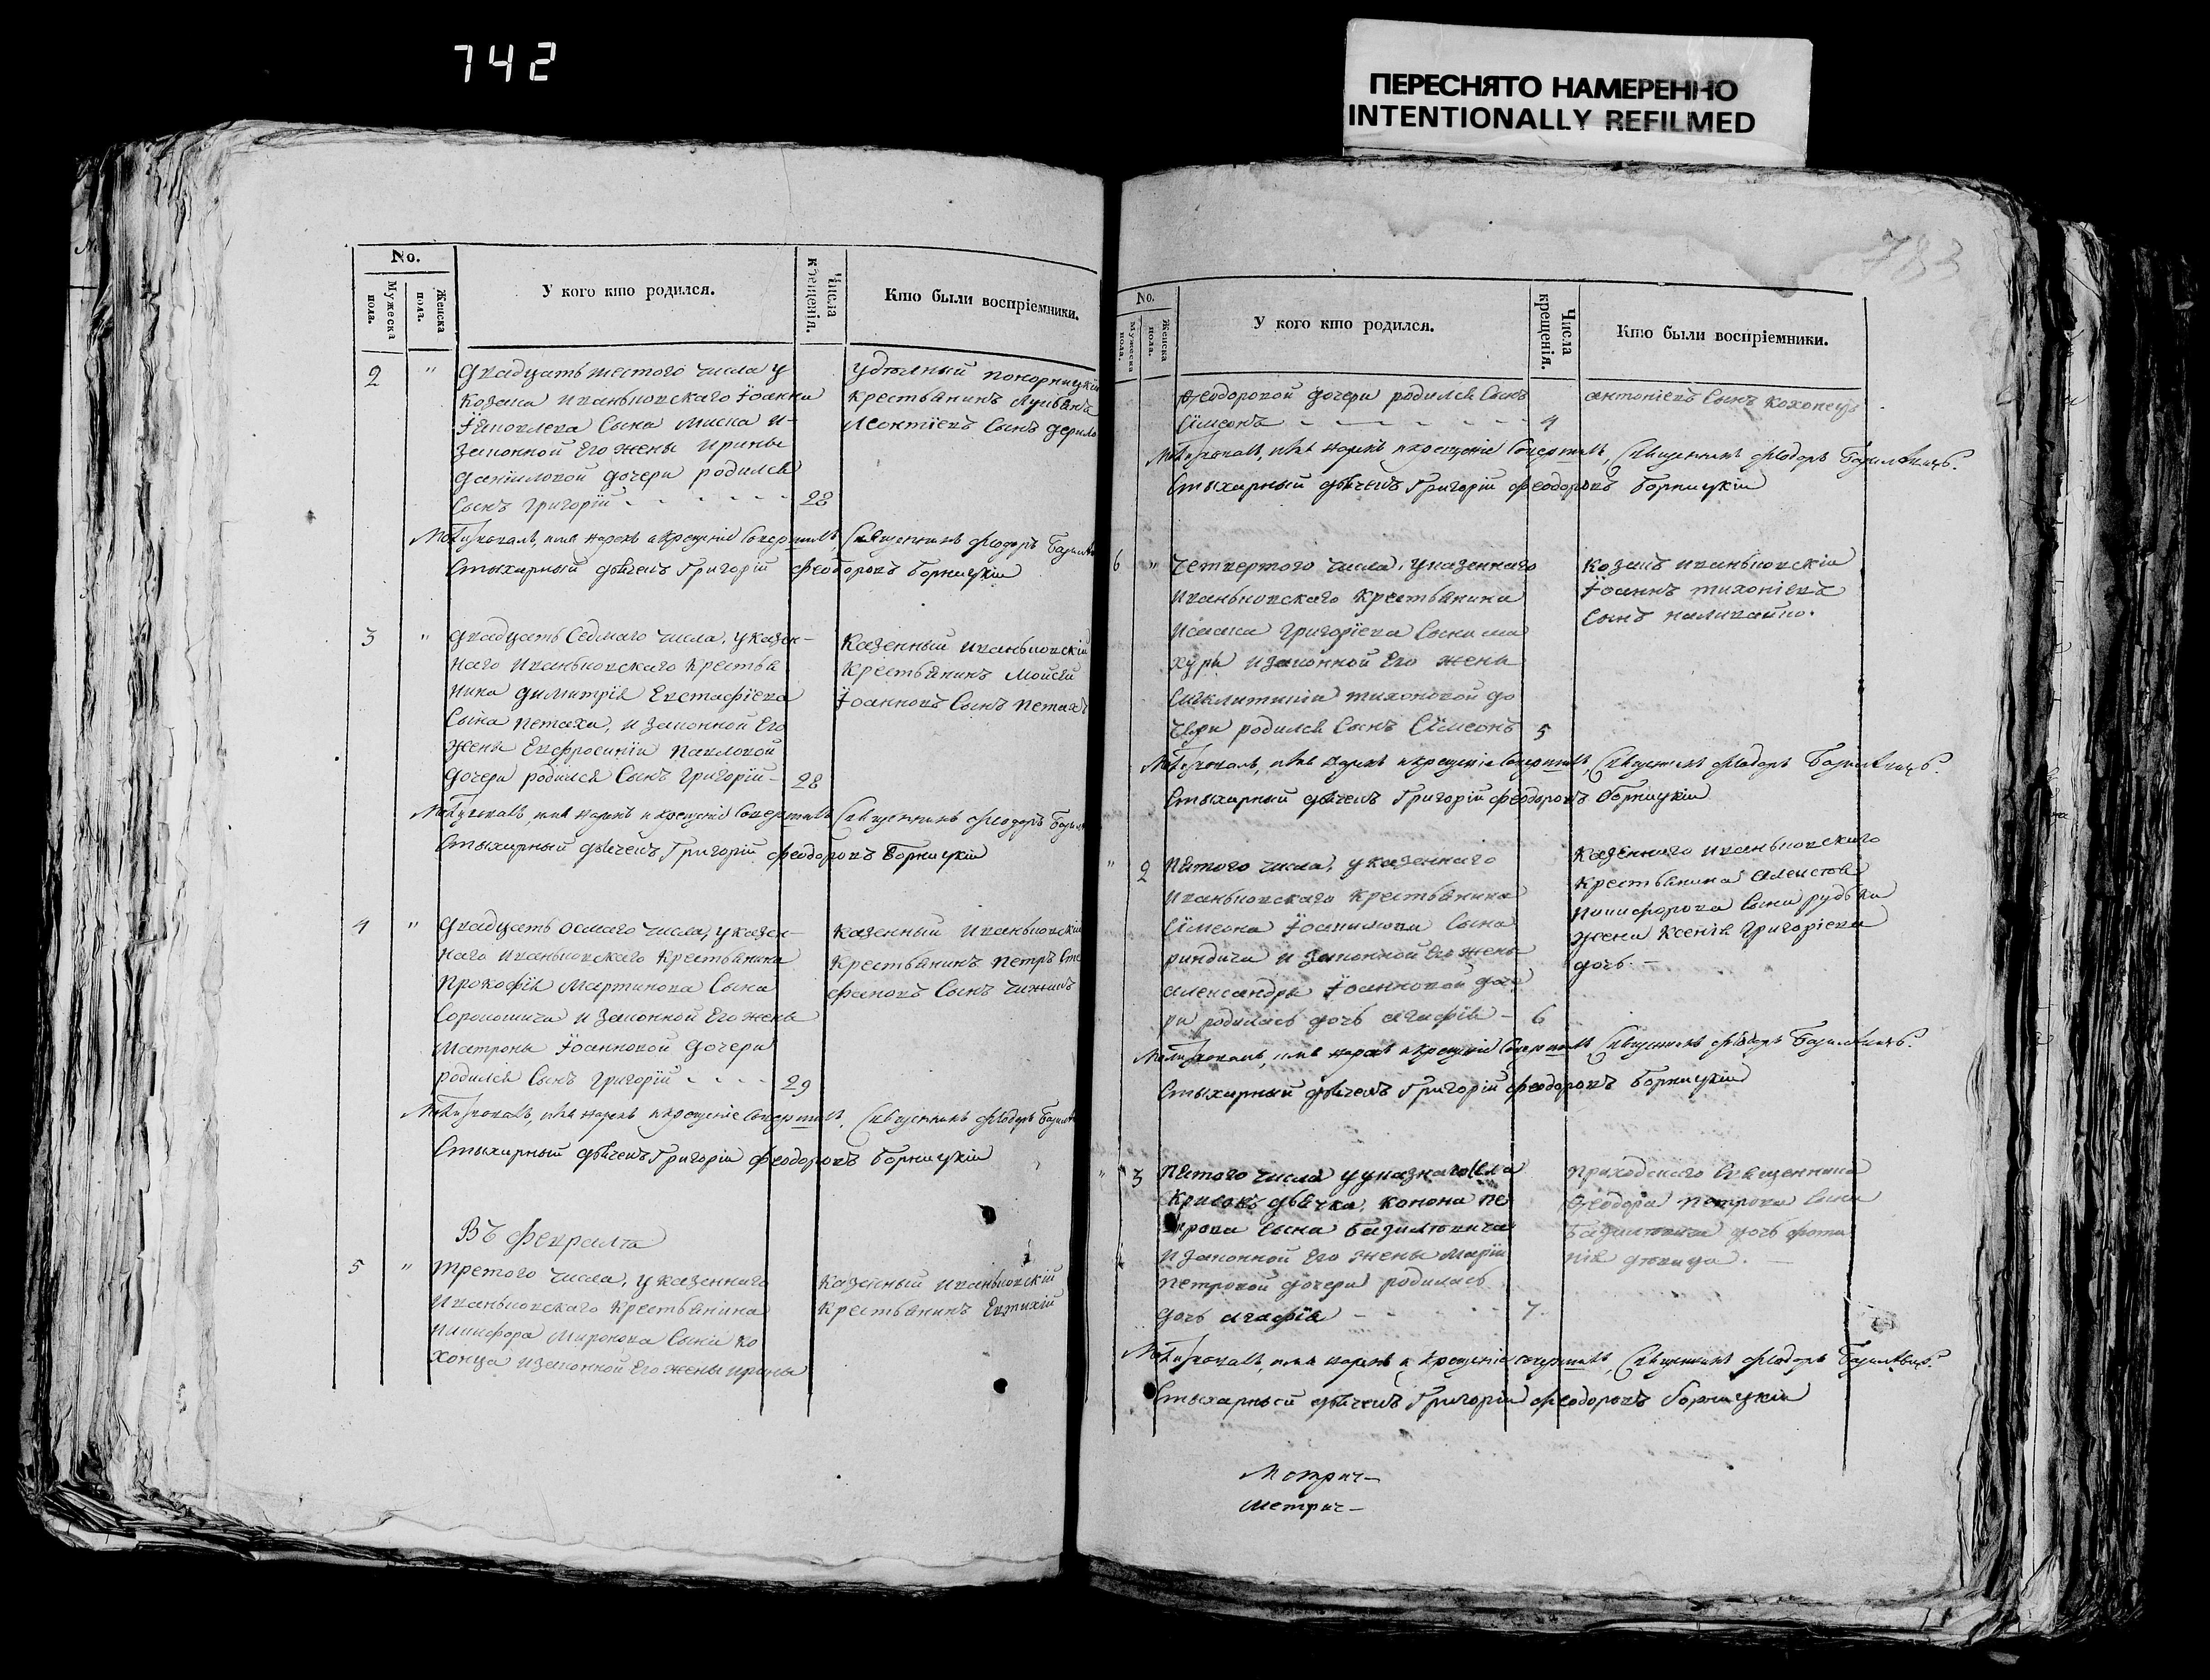 742
ПЕРЕСНЯТО НАМЕРЕННО
INTENTIONALLY REFILMED
No.
Мужеска пола.
Женска пола.
У кого кто родился.
Числа крещенія.
Кто были воспріемники.
2 " двадцать шестого числа у
козака Иваньковскаго Іоанна
Іяковлева сына Миска и
законной его жены Ирины
Даніиловой дочери родился
сынъ Григорій - - - 28
удѣлный Понорницкій
крестьянинъ Лукьянъ
Леонтіевъ сынъ
Молитвовалъ, имя нарекъ и крещеніе совершилъ, Священникъ Ѳеодоръ
Стыхарный дьячекъ Григорій Феодоровъ Борницкій
3 " двадцать седмаго числа, у казен-
наго Иваньковскаго крестья
нина Димитрія Евстафіева
сына Петаха, и законной его
жены Евфросиніи Павловой
дочери родился сынъ Григорій - 28
Казенный Иваньковскій
крестьянинъ Моисей
Іоанновъ сынъ Петахъ
Молитвовалъ, имя нарекъ и крещеніе совершилъ, Священникъ Ѳеодоръ
Стыхарный дьячекъ Григорій Феодоровъ Борницкій
4 " двадцать осмаго числа, у казен-
наго Иваньковскаго крестьянина
Прокофія Мартинова сына
и законной его жены
Матроны Іоанновой дочери
родился сынъ Григорій - - - 29
казенный Иваньковскій
крестьянинъ Петръ Сте
фановъ сынъ Чижикъ
Молитвовалъ, имя нарекъ и крещеніе совершилъ, Священникъ Ѳеодоръ
Стыхарный дьячекъ Григорій Феодоровъ Борницкій
Въ Февралѣ
5 " третого числа, у казеннаго
Иваньковскаго крестьянина
Никифора Миронова сына Ко
хонца и законной его жены Ирины
казенный Иваньковскій
крестьянинъ Евтихій
783
No.
Мужеска пола.
Женска пола.
У кого кто родился.
Числа крещенія.
Кто были воспріемники.
Феодоровой дочери родился сынъ
Сімеонъ - - - - 4
Антоніевъ сынъ Кохонецъ
Молитвовалъ, имя нарекъ и крещеніе совершилъ, Священникъ Ѳеодоръ Базилевичъ.
Стыхарный дьячекъ Григорій Феодоровъ Борницкій
6 " четвертого числа, у казеннаго
Иваньковскаго крестьянина
Исаака Григоріева сына Ма
хури и законной его жены
Сигклитикіи Тихоновой до
чери родился сынъ Сімеонъ 5
козакъ Иваньковскій
Іоаннъ Тихоніевъ
сынъ Наливайко.
Молитвовалъ, имя нарекъ и крещеніе совершилъ, Священникъ Ѳеодоръ Базилевичъ.
Стыхарный дьячекъ Григорій Феодоровъ Борницкій
" 2 Пятого числа, у казеннаго
Иваньковскаго крестьянина
Сімеона сына
Риндича и законной его жены
Александры Іоанновой доче
ри родилась дочь Агафія - 6
Казеннаго Иваньковскаго
крестьянина Алексѣя
Никифорова сына Рудька
жена Ксенія Григоріева
дочь. -
Молитвовалъ, имя нарекъ и крещеніе совершилъ, Священникъ Ѳеодоръ Базилевичъ.
Стыхарный дьячекъ Григорій Феодоровъ Борницкій
" 3 Пятого числа у указнаго села
дьячка, Конона Пе
трова сына Базилевича
и законной его жены Маріи
Петровой дочери родилась
дочь Агафія - - - 7.
приходскаго священника
Феодора Петрова сына
Базилевича дочь Фоти
нія дѣвица. -
Молитвовалъ, имя нарекъ и крещеніе совершилъ, Священникъ Ѳеодоръ Базилевичъ.
Стыхарный дьячекъ Григорій Феодоровъ Борницкій
Мотрич-
Метрич-